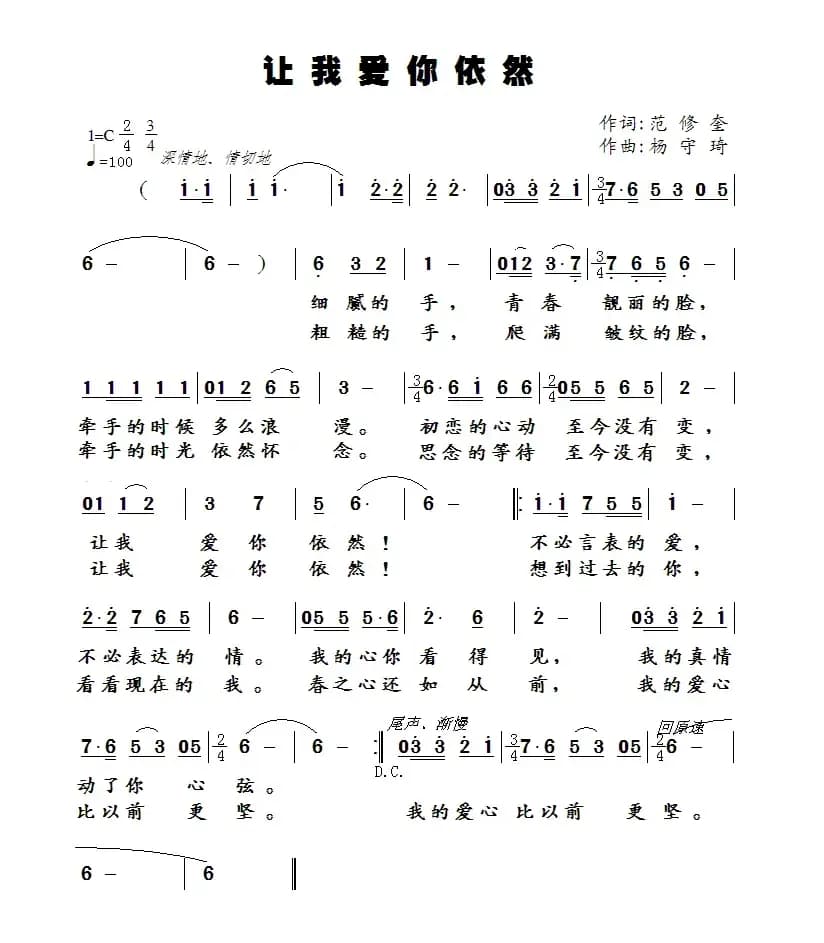 让我爱你依然
作词:范修奎
1=C 2/4 3/4
作曲:杨守琦
♩=100 深情地、情切地
( i·i | i i· | i 2·2 | 2 2· | 033 2i | 3/4 7·6 53 05 |
6 - | 6 - ) | 6 32 | 1 - | 012 3·7 | 3/4 765 6 - |
细腻的手, 青春 靓丽的脸,
粗糙的手, 爬满 皱纹的脸,
11111 11 | 012 65 | 3 - | 3/4 6·6i 66 | 2/4 055 65 | 2 - |
牵手的时候 多么浪 漫。 初恋的心动 至今没有 变,
牵手的时光 依然怀 念。 思念的等待 至今没有 变,
01 12 | 3 7 | 5 6· | 6 - |: i·i 755 | i - |
让我 爱你 依然! 不必言表的爱,
让我 爱你 依然! 想到过去的你,
2·2 765 | 6 - | 055 5·6 | 2· 6 | 2 - | 033 2i |
不必表达的 情。 我的心你 看得 见, 我的真情
看看现在的 我。 春之心还 如从 前, 我的爱心
尾声、渐慢 回原速
7·6 53 05 | 2/4 6 - | 6 - :| 033 2i | 3/4 7·6 53 05 | 2/4 6 - |
D.C.
动了你 心弦。
比以前 更坚。 我的爱心 比以前 更坚。
6 - | 6 ||